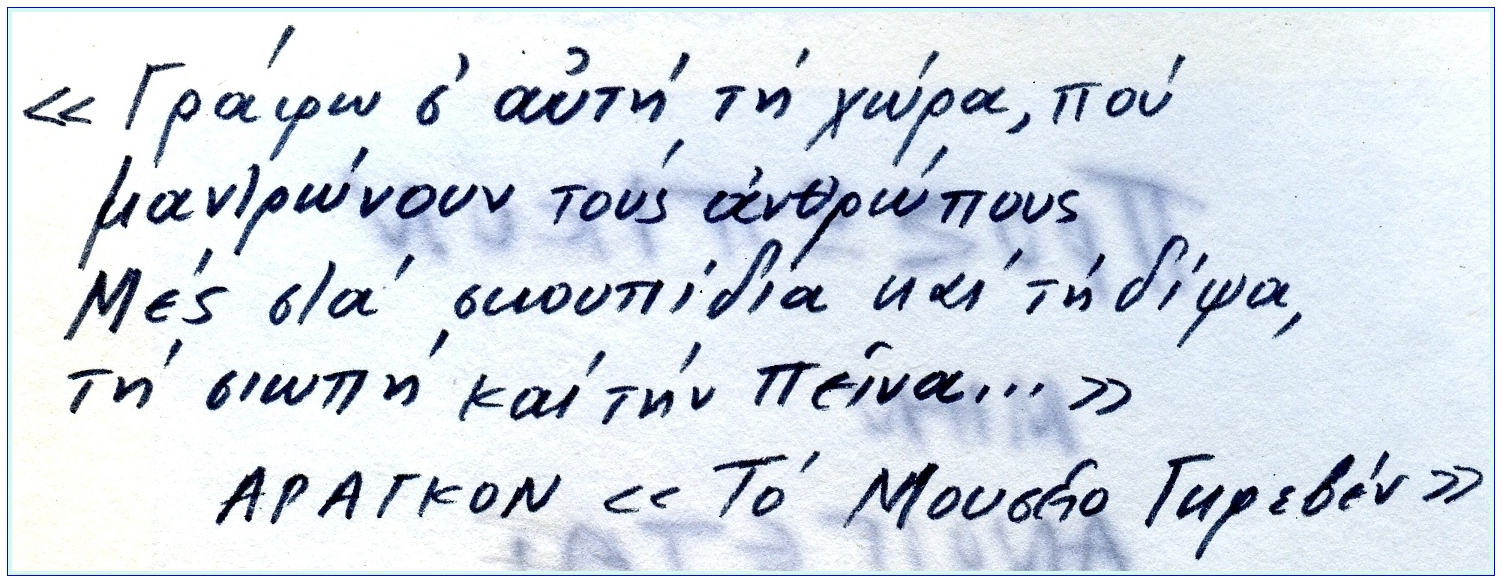 «Γράφω σ' αὐτή τή χώρα, πού
μαντρώνουν τούς ἀνθρώπους
Μές στά σκουπίδια καί τή δίψα,
τή σιωπή καί τήν πεῖνα...»
ΑΡΑΓΚΟΝ «Τό Μουσεῖο Γκρεβέν»